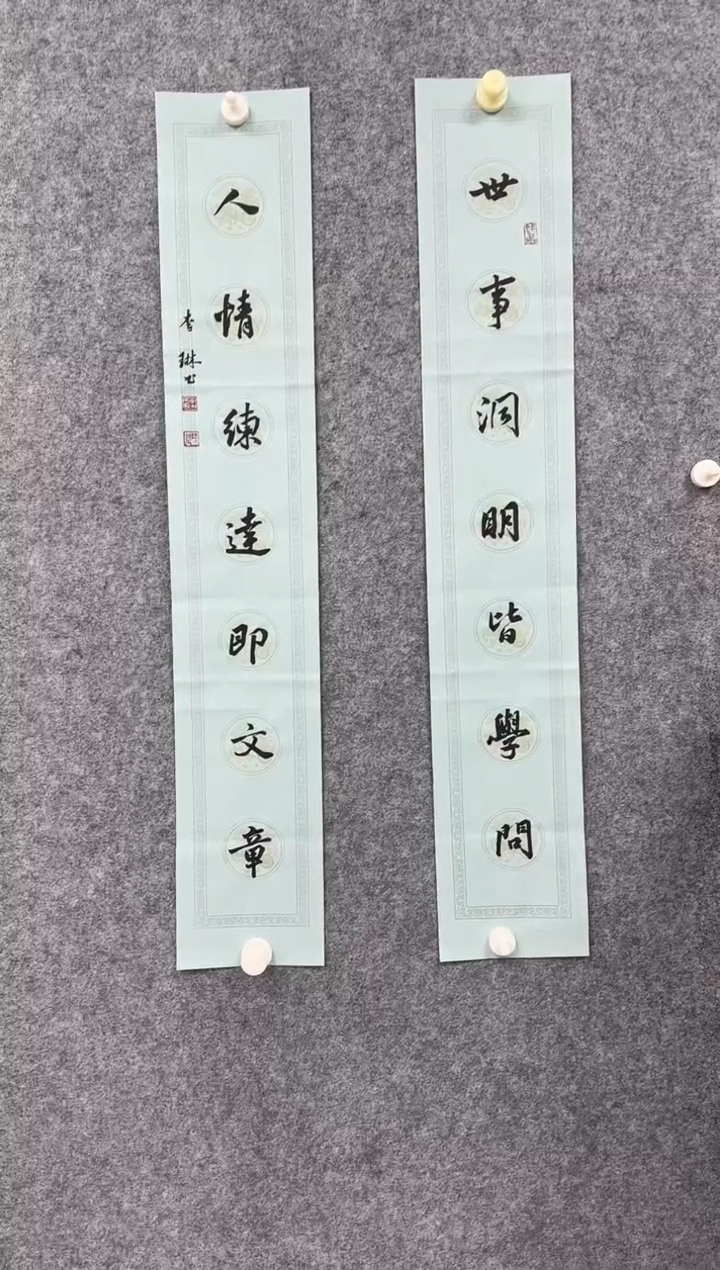 世事洞明皆學問
人情練達即文章
李琳书